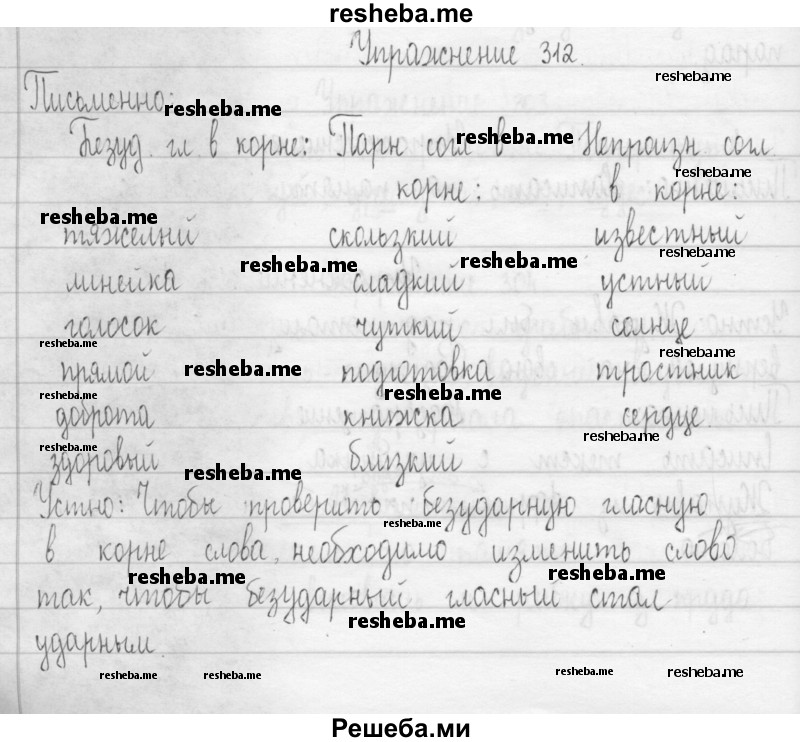 resheba.me
Упражнение 312.
resheba.me
Письменно: resheba.me
Безуд. гл. в корне: Парн. согл. в Непроизн. согл.
resheba.me
resheba.me
корне: в корне:
resheba.me
тяжелый скользкий известный
resheba.me resheba.me resheba.me
линейка сладкий устный
голосок чуткий солнце
resheba.me resheba.me
прямой resheba.me подготовка тростник
resheba.me resheba.me
доброта книжка сердце.
resheba.me resheba.me
здоровый близкий
resheba.me
Устно: Чтобы проверить безударную гласную
resheba.me
в корне слова, необходимо изменить слово
resheba.me resheba.me
так, чтобы безударный гласный стал
resheba.me
ударным.
resheba.me resheba.me resheba.me resheba.me
Решеба.ми